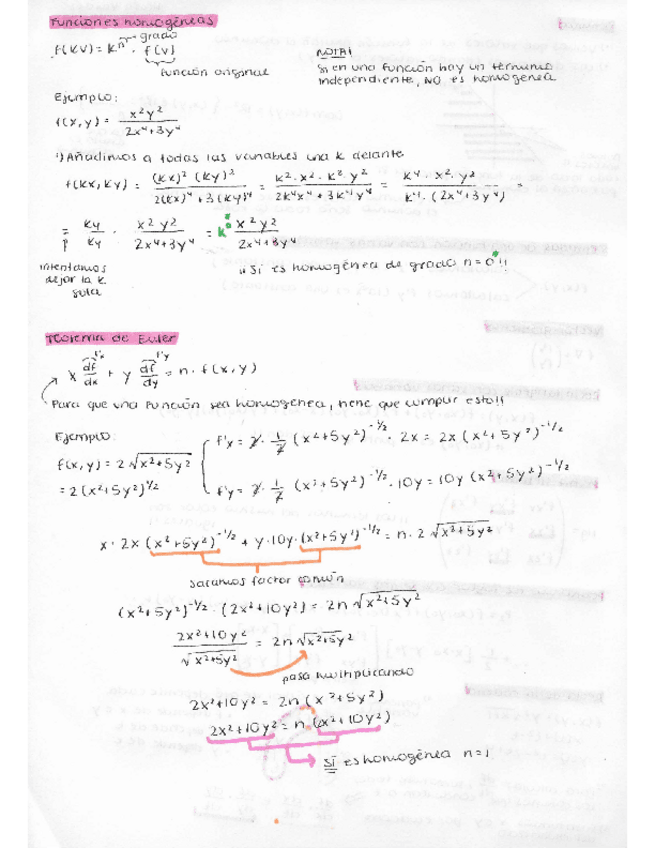 Funciones homogéneas
f(KV) = kⁿ · f(v)
grado
función original
NOTA!
Si en una función hay un término
independiente, NO es homogenea
Ejemplo:
f(x,y) = x²y² / 2x⁴+3y⁴
1) Añadimos a todas las variables una k delante
f(kx, ky) = (kx)² (ky)² / 2(kx)⁴ + 3(ky)⁴ = k²·x²·k²·y² / 2k⁴x⁴ + 3k⁴y⁴ = k⁴·x²·y² / k⁴·(2x⁴+3y⁴) =
= k⁴ / k⁴ · x²y² / 2x⁴+3y⁴ = k⁰ x²y² / 2x⁴+3y⁴
intentamos
dejar la k
sola
¡¡ Sí es homogénea de grado n = 0!!
Teorema de Euler
f'x f'y
x df/dx + y df/dy = n · f(x,y)
Para que una función sea homogenea, tiene que cumplir esto!!
Ejemplo:
f(x,y) = 2√x²+5y²
= 2(x²+5y²)^1/2
f'x = 2 · 1/2 (x²+5y²)^-1/2 · 2x = 2x (x²+5y²)^-1/2
f'y = 2 · 1/2 (x²+5y²)^-1/2 · 10y = 10y (x²+5y²)^-1/2
x · 2x (x²+5y²)^-1/2 + y · 10y · (x²+5y²)^-1/2 = n · 2 √x²+5y²
sacamos factor común
(x²+5y²)^-1/2 · (2x²+10y²) = 2n √x²+5y²
2x²+10y² / √x²+5y² = 2n √x²+5y²
pasa multiplicando
2x²+10y² = 2n (x²+5y²)
2x²+10y² = n (2x²+10y²)
SÍ es homogénea n=1